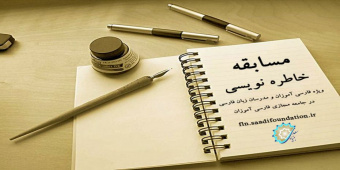 مسابقه
خاطره نویسی
ویژه فارسی آموزان و مدرسان زبان فارسی
در جامعه مجازی فارسی آموزان
fln.saadifoundation.ir